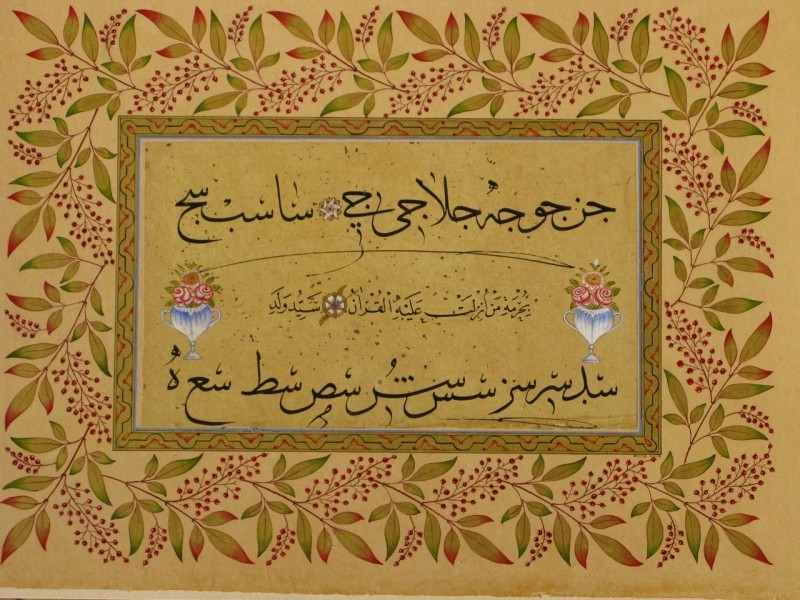 جن جو جه جلا جى جے سا سب سج
بحرمة من انزلت عليه القران سيد ولد
سد سر سس سص سط سع ه